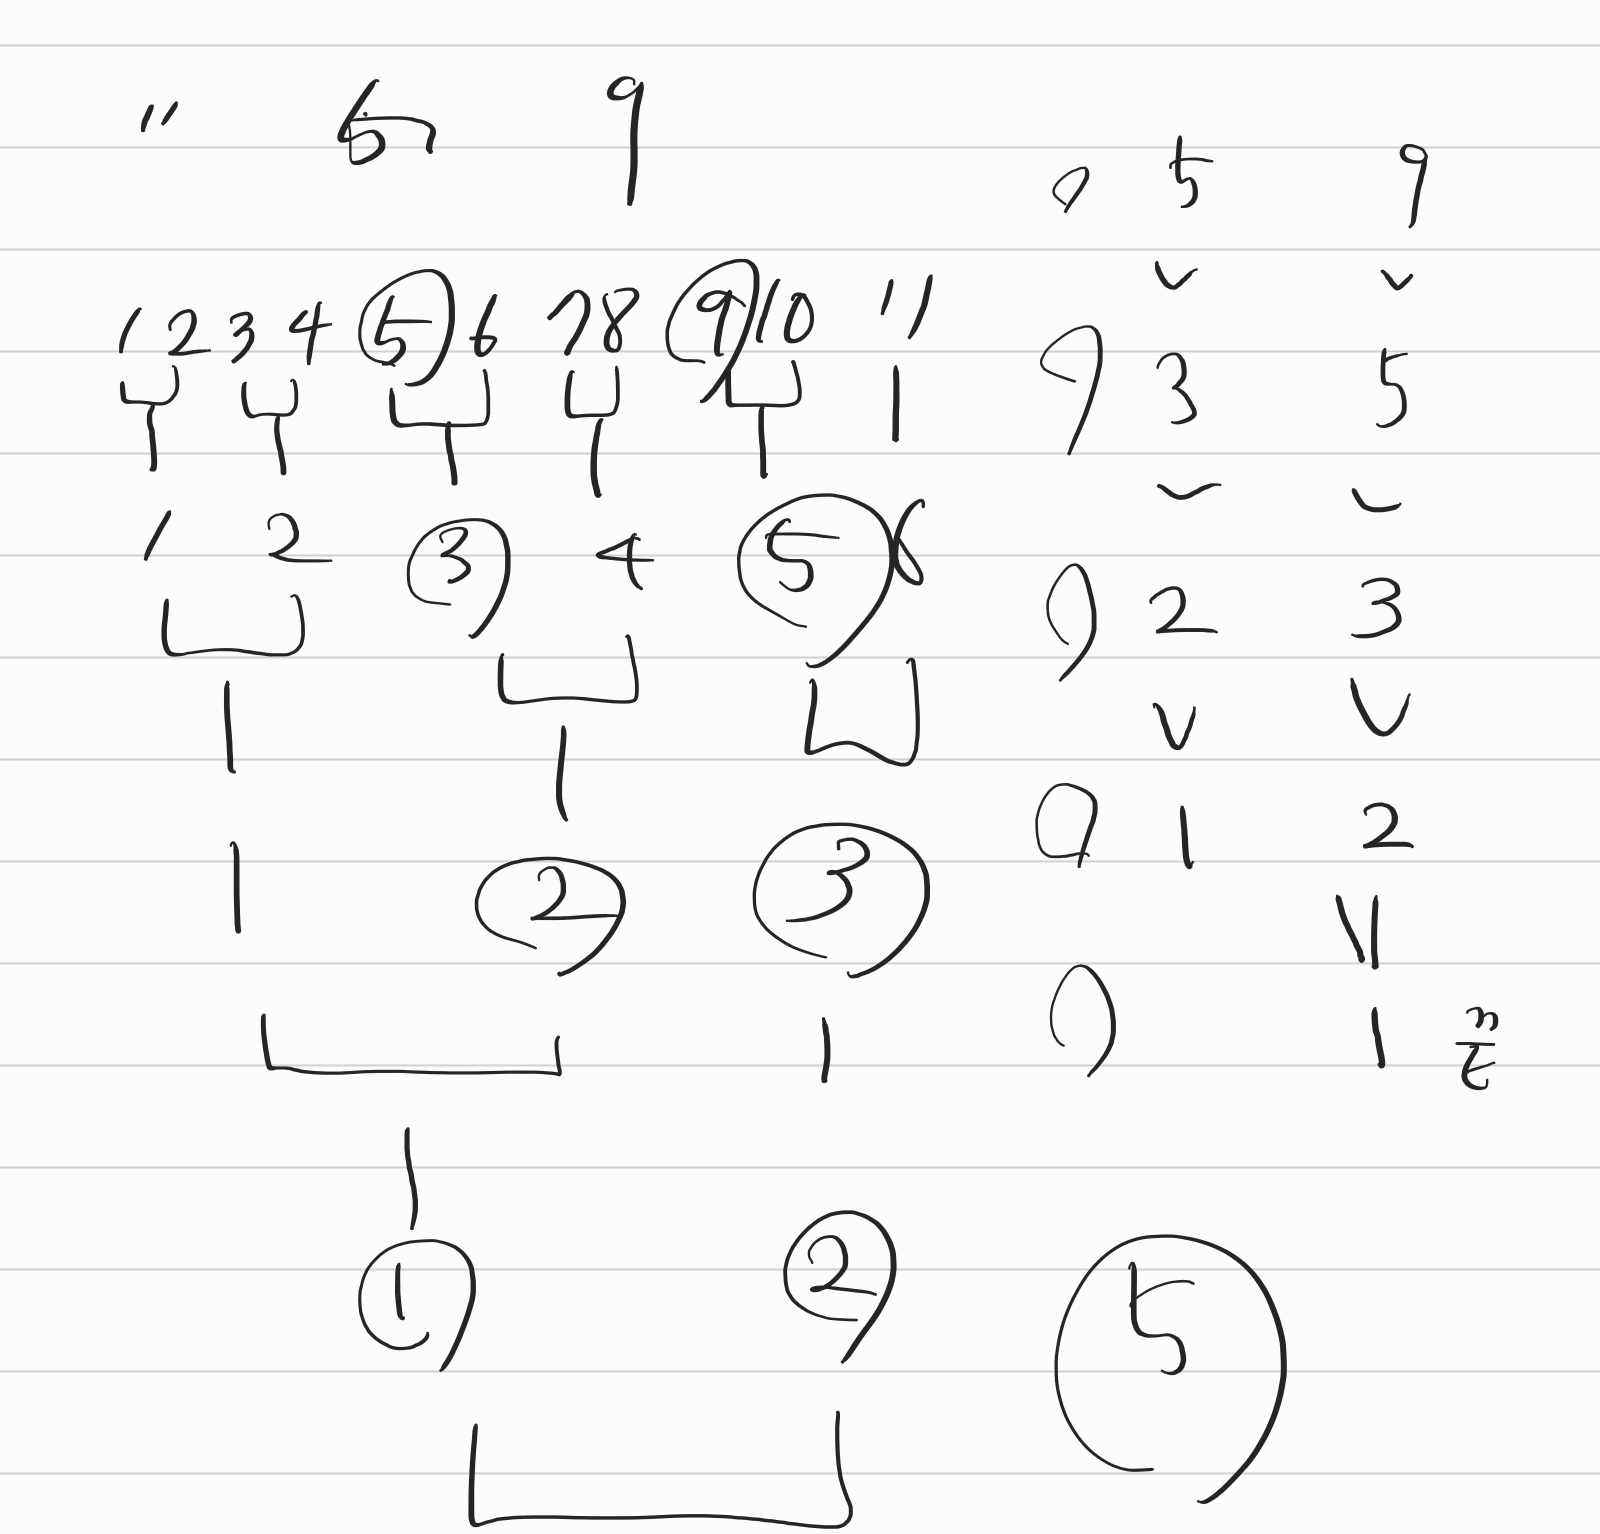 11 5 9
1 2 3 4 5 6 7 8 9 10 11
1 2 3 4 5 6
1 2 3
1 2
5 9
3 5
2 3
1 2
1
5